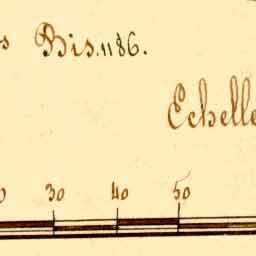 s Bis. 1186.
Echelle
0 30 40 50